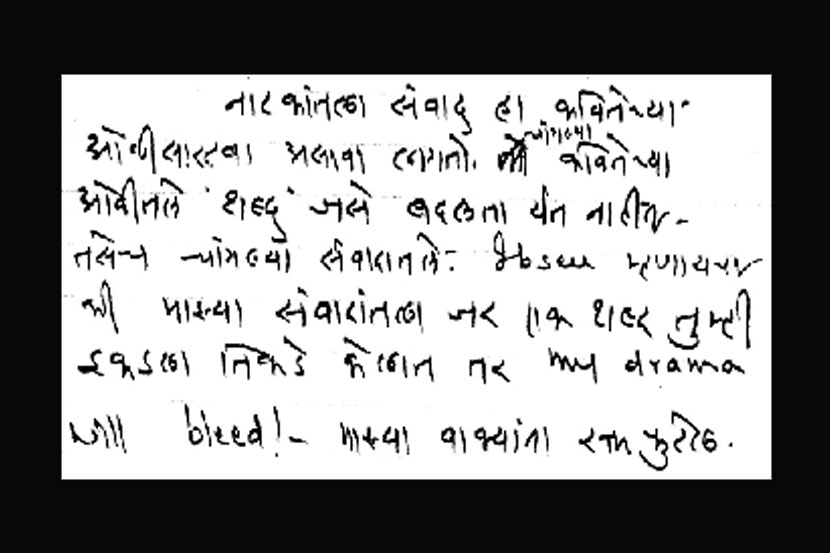 नाटकांतला संवाद हा कवितेच्या
चांगल्या
ओळीसारखा असावा लागतो. कवितेच्या
ओळीतले 'शब्द' जसे बदलता येत नाहीत -
तसेच चांगल्या संवादातले. Ibsen म्हणायचा
की माझ्या संवादांतला जर एक शब्द तुम्ही
इकडला तिकडे केलात तर my drama
will bleed! - माझ्या वाक्यांना रक्त फुटेल.